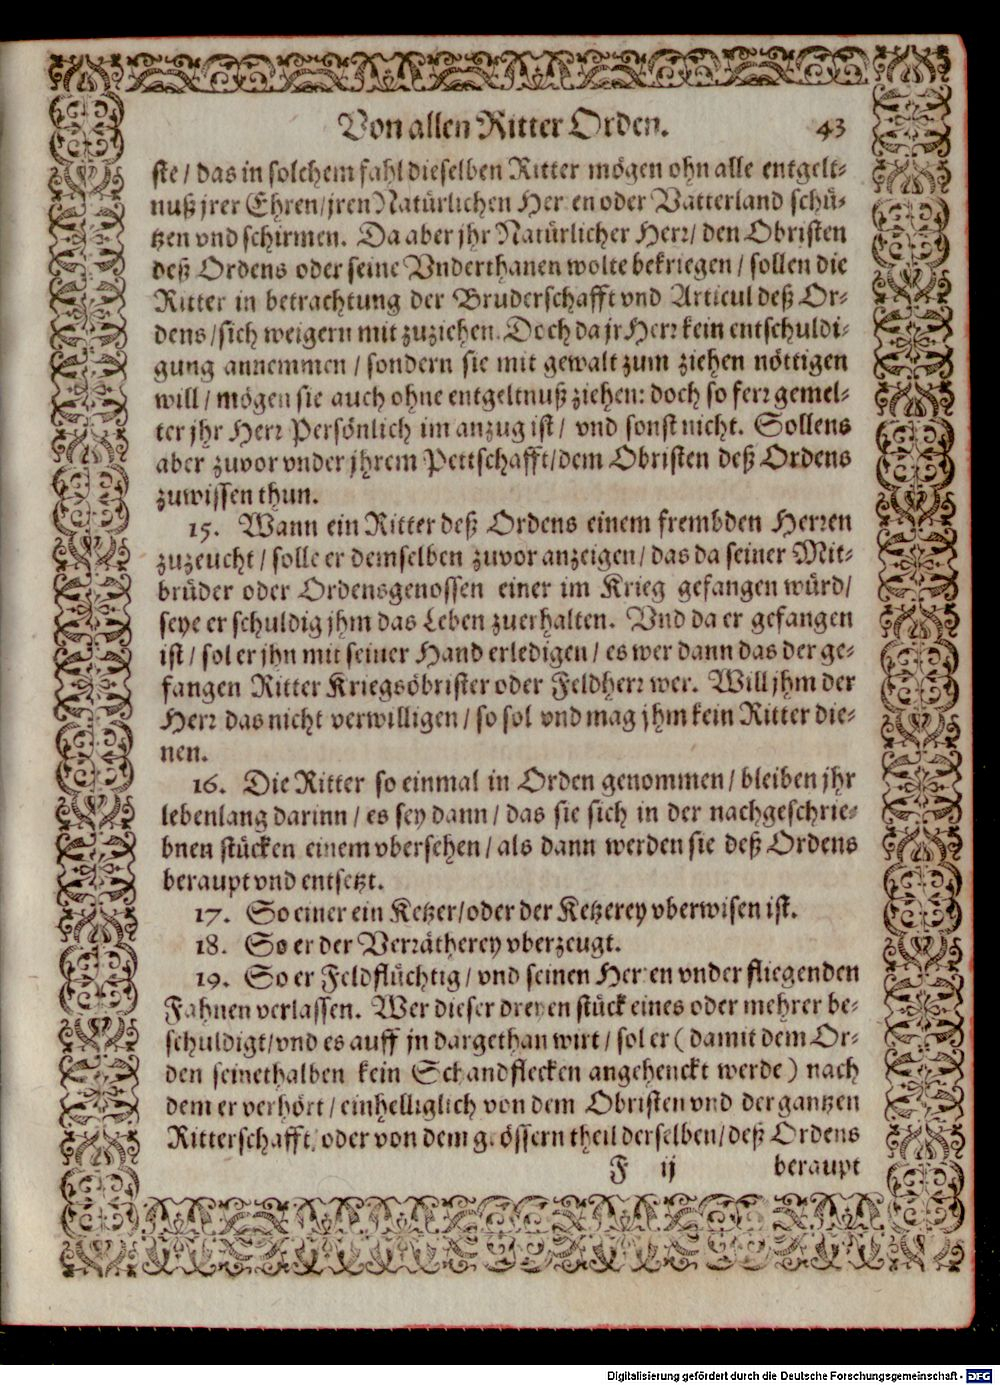 Von allen Ritter Orden. 43
ste / das in solchem fahl dieselben Ritter mögen ohn alle entgelt-
nuß jrer Ehren/jren Natürlichen Herren oder Vatterland schü-
tzen vnd schirmen. Da aber jhr Natürlicher Herr/ den Obristen
deß Ordens oder seine Vnderthanen wolte bekriegen / sollen die
Ritter in betrachtung der Bruderschafft vnd Articul deß Or-
dens /sich weigern mit zuziehen. Doch da jr Herr kein entschuldi-
gung annemmen / sondern sie mit gewalt zum ziehen nöttigen
will / mögen sie auch ohne entgeltnuß ziehen: doch so ferr gemel-
ter jhr Herr Persönlich im anzug ist / vnd sonst nicht. Sollens
aber zuvor vnder jhrem Pettschafft/dem Obristen deß Ordens
zuwissen thun.
15. Wann ein Ritter deß Ordens einem frembden Herren
zuzeucht / solle er demselben zuvor anzeigen / das da seiner Mit-
brüder oder Ordensgenossen einer im Krieg gefangen würd/
seye er schuldig jhm das Leben zuerhalten. Vnd da er gefangen
ist / sol er jhn mit seiner Hand erledigen / es wer dann das der ge-
fangen Ritter Kriegsöbrister oder Feldherr wer. Will jhm der
Herr das nicht verwilligen / so sol vnd mag jhm kein Ritter die-
nen.
16. Die Ritter so einmal in Orden genommen / bleiben jhr
lebenlang darinn / es sey dann / das sie sich in der nachgeschrie-
bnen stücken einem vbersehen / als dann werden sie deß Ordens
beraupt vnd entsetzt.
17. So einer ein Ketzer/oder der Ketzerey vberwisen ist.
18. So er der Verrätherey vberzeugt.
19. So er Feldflüchtig / vnd seinen Herren vnder fliegenden
Fahnen verlassen. Wer dieser dreyen stück eines oder mehrer be-
schuldigt/vnd es auff jn dargethan wirt / sol er ( damit dem Or-
den seinethalben kein Schandflecken angehenckt werde ) nach
dem er verhört / einhelliglich von dem Obristen vnd der gantzen
Ritterschafft/ oder von dem grössern theil derselben/deß Ordens
F ij beraupt
Digitalisierung gefördert durch die Deutsche Forschungsgemeinschaft - DFG